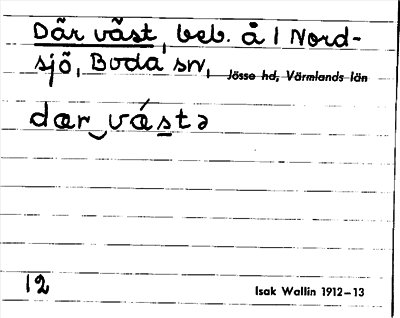 Där väst, beb. å 1 Nord-
sjö, Boda sn, Jösse hd, Värmlands län
dær‿vǽstə
12
Isak Wallin 1912–13